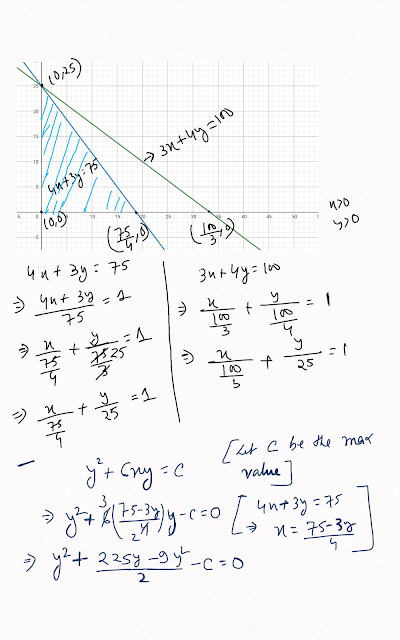 (0,25)
3x+4y=100
4x+3y=75
25
20
15
10
5
-5
-5
0
5
10
15
20
25
30
35
40
45
50
(0,0)
(75/4,0)
(100/3,0)
x>0
y>0
4x+3y=75
⇒ (4x+3y)/75 = 1
⇒ x/(75/4) + y/(75/3) 25 = 1
⇒ x/(75/4) + y/25 = 1
3x+4y=100
⇒ x/(100/3) + y/(100/4) = 1
⇒ x/(100/3) + y/25 = 1
y²+6xy=c
[Let C be the max value]
⇒ y²+6 3((75-3y)/4 2)y-c=0
[4x+3y=75
⇒ x=(75-3y)/4]
⇒ y²+(225y-9y²)/2-c=0